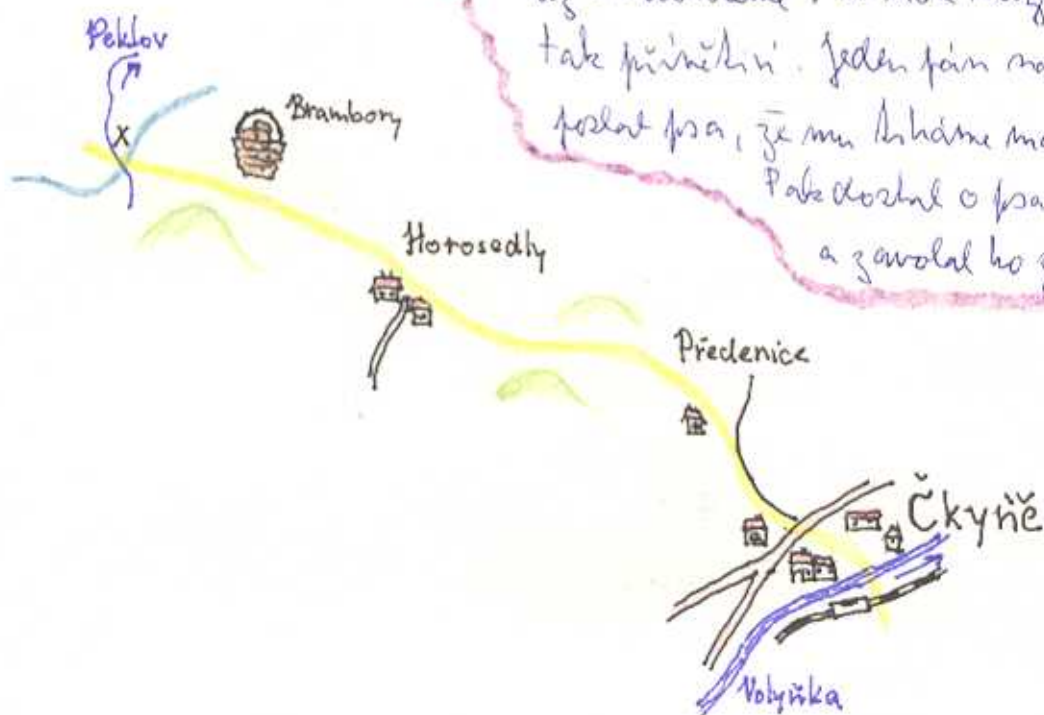 tak přívětiví. Jeden pán na
poslat psa, že mu trháme ma
Pak dostal o psa
a zavolal ho z
Peklov
X
Brambory
Horosedly
Předenice
Čkyňě
Volyňka